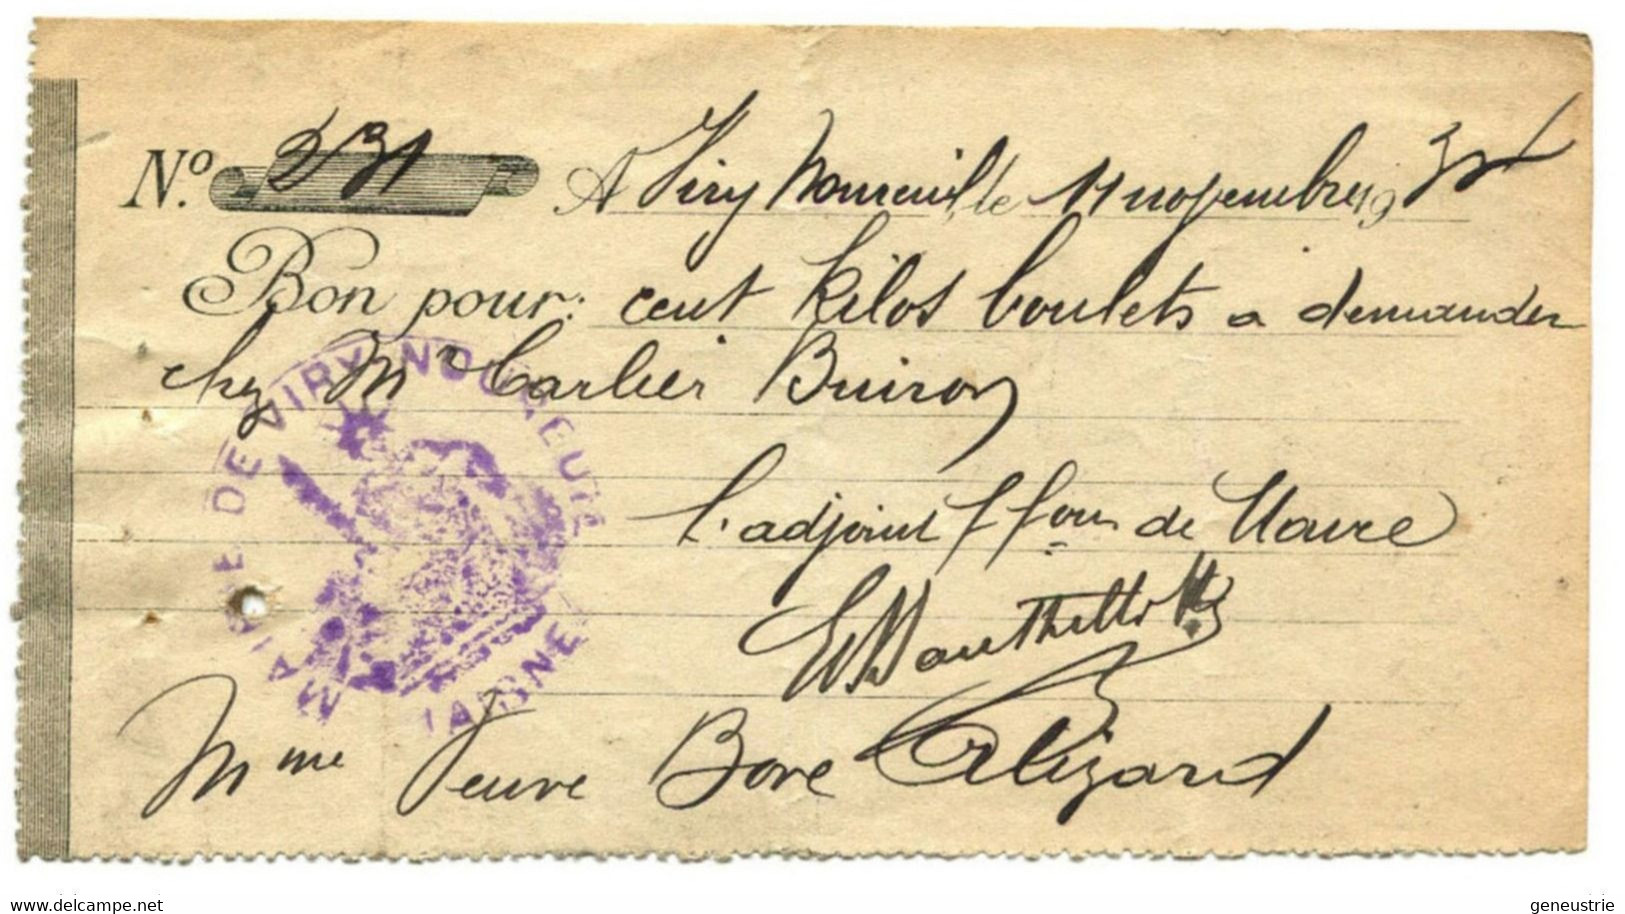 No. 231 A Viry Noureuil, le 11 novembre 193
Bon pour: cent kilos boulets a demander
chez Mr Carlier Buiron
MAIRIE DE VIRY NOUREUIL
(AISNE)
L'adjoint f fons de Maire
Mme Veuve Bove Alizard
www.delcampe.net
geneustrie